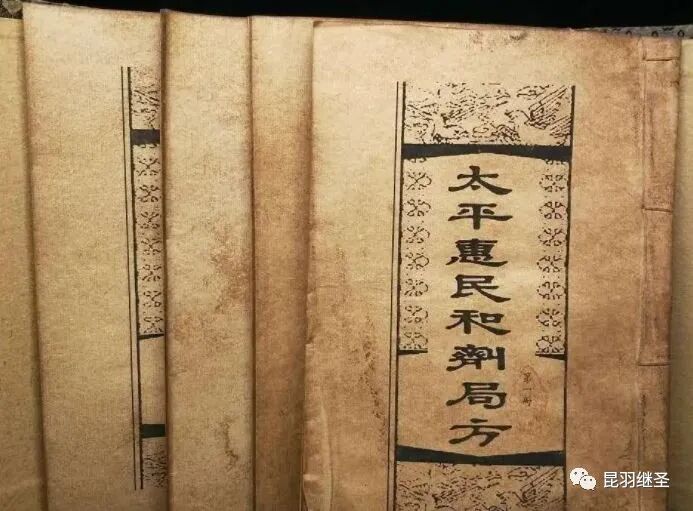 太平惠民和劑局方
第一册
昆羽继圣